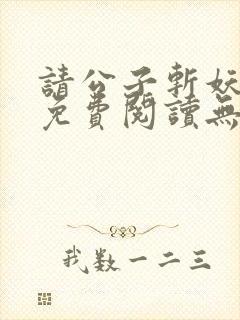 請公子斬妖
免費閱讀無
我数一二三